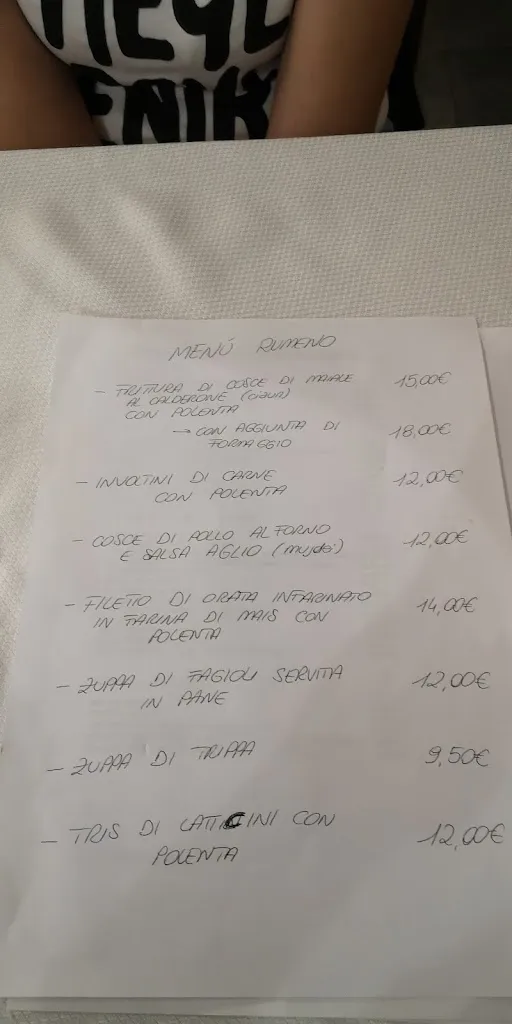 ENIK
MENÚ RUMENO
- FRITTURA DI COSCE DI MAIALE 15,00€
AL CALDERONE (ciaun)
CON POLENTA
→ CON AGGIUNTA DI 18,00€
FORMAGGIO
- INVOLTINI DI CARNE 12,00€
CON POLENTA
- COSCE DI POLLO AL FORNO 12,00€
E SALSA AGLIO (mujdei)
- FILETTO DI ORATA INFARINATO 14,00€
IN FARINA DI MAIS CON
POLENTA
- ZUPPA DI FAGIOLI SERVITA 12,00€
IN PANE
- ZUPPA DI TRIPPA 9,50€
- TRIS DI LATTICINI CON 12,00€
POLENTA